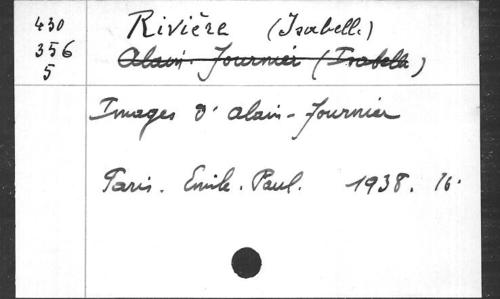 430
356
5
Rivière (Isabelle)
Alain-Fournier (Isabelle)
Images d'Alain-Fournier
Paris. Emile. Paul. 1938. 16.